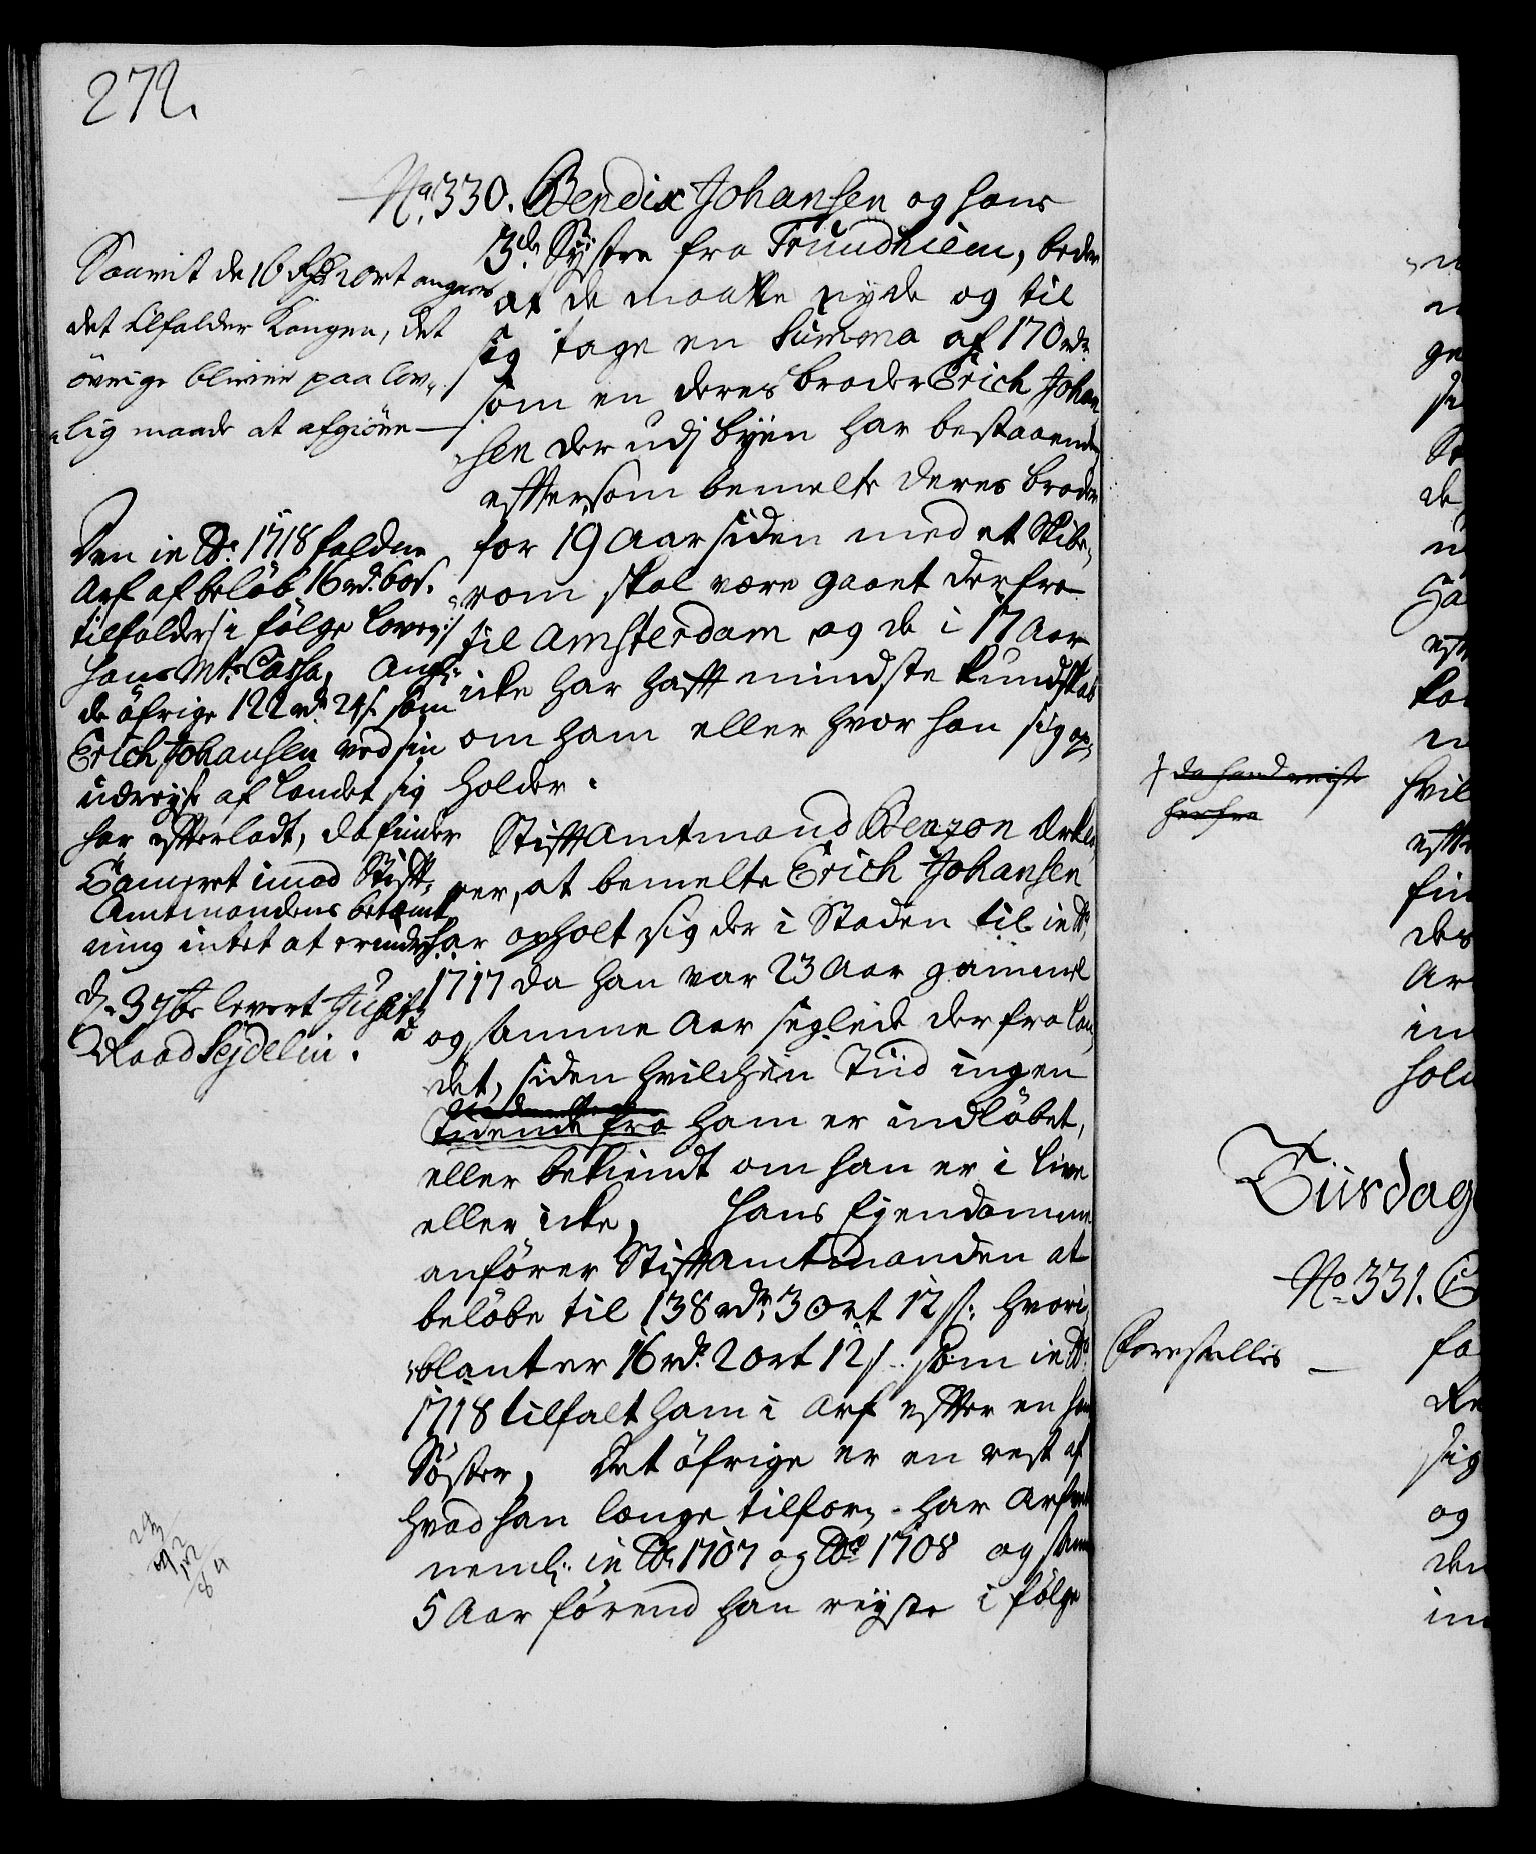 272.
No. 330. Bendix Johansen og hans
3de Systre fra Trundhiem, beder
at de maatte nyde og til
sig tage en Summa af 170 rdr
som en deres broder Erich Johan
sen der udj byen har bestaaende,
efftersom bemelte deres broder
for 19 Aar siden med et Skibe,
rom skal være gaaet derfra
til Amsterdam og de i 17 Aar
icke har hafft mindste kundskab
om ham eller hvor han sig op,
holder.
StifftAmtmand Benzon erkle,
rer, at bemelte Erich Johansen
har opholt sig der i Staden til in Ao
1717 da han var 23 Aar gammel
og samme Aar seglede derfra Lan,
det, siden hvilchen Tiid ingen
Tidende fra ham er indløbet,
eller bekiendt om han er i Live
eller icke, Hans Ejendomme
anfører Stifftamtmanden at
beløbe til 138 rdr 3 ort 12 s: hvori,
blant er 16 rdr. 2 ort 12 s. som in Ao
1718 tilfalt ham i Arf effter en hans
Søster, Det øfrige er en rest af
hvad han længe tilforn har Arfvet
neml: in Ao 1707 og Ao 1708 og samme
5 Aar förend han reyste i følge
Saavit de 16 rdr 2 ort angaaer
det tilfalder Kongen, det
övrige bliver paa lov,
lig maade at afgiöre
Den in Ao 1718 faldne
Arf af beløb 16 rd. 60 s.
tilfalder i følge Loven
Hans Mts Cassa, Anl:
de øfrige 122 rdr 24 s. som
Erich Johansen ved sin
udreyse af Landet sig
har efterladt, da finder
Cammeret imod Stifft,
Amtmandens betænk
ning intet at erindre.
d. 3 7br levert Justitz
Raad Sejdelin.
† da hand reiste
herfra
Tiisdag
No. 331.
Forestilles